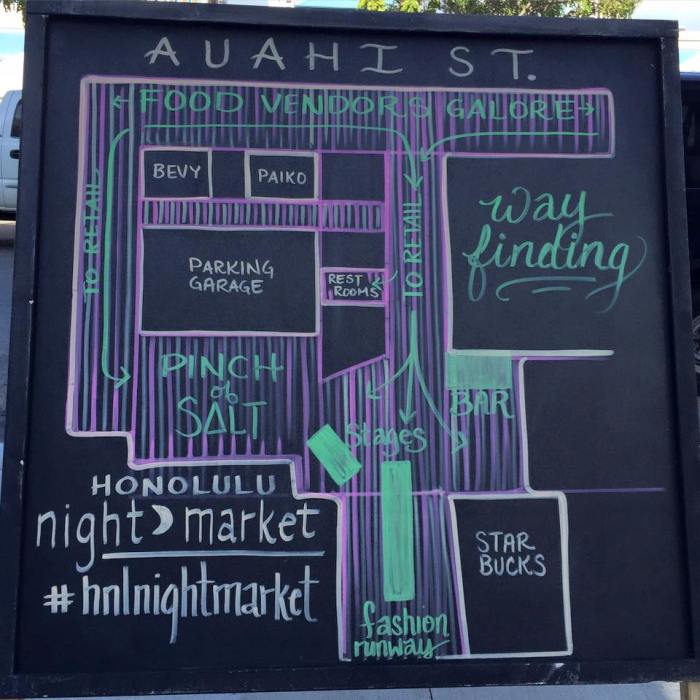 AUAHI ST.
← FOOD VENDORS GALORE →
BEVY
PAIKO
TO RETAIL
TO RETAIL
way
finding
PARKING
GARAGE
REST
ROOMS
PINCH
of
SALT
BAR
Stages
HONOLULU
night market
#hnlnightmarket
STAR
BUCKS
fashion
runway